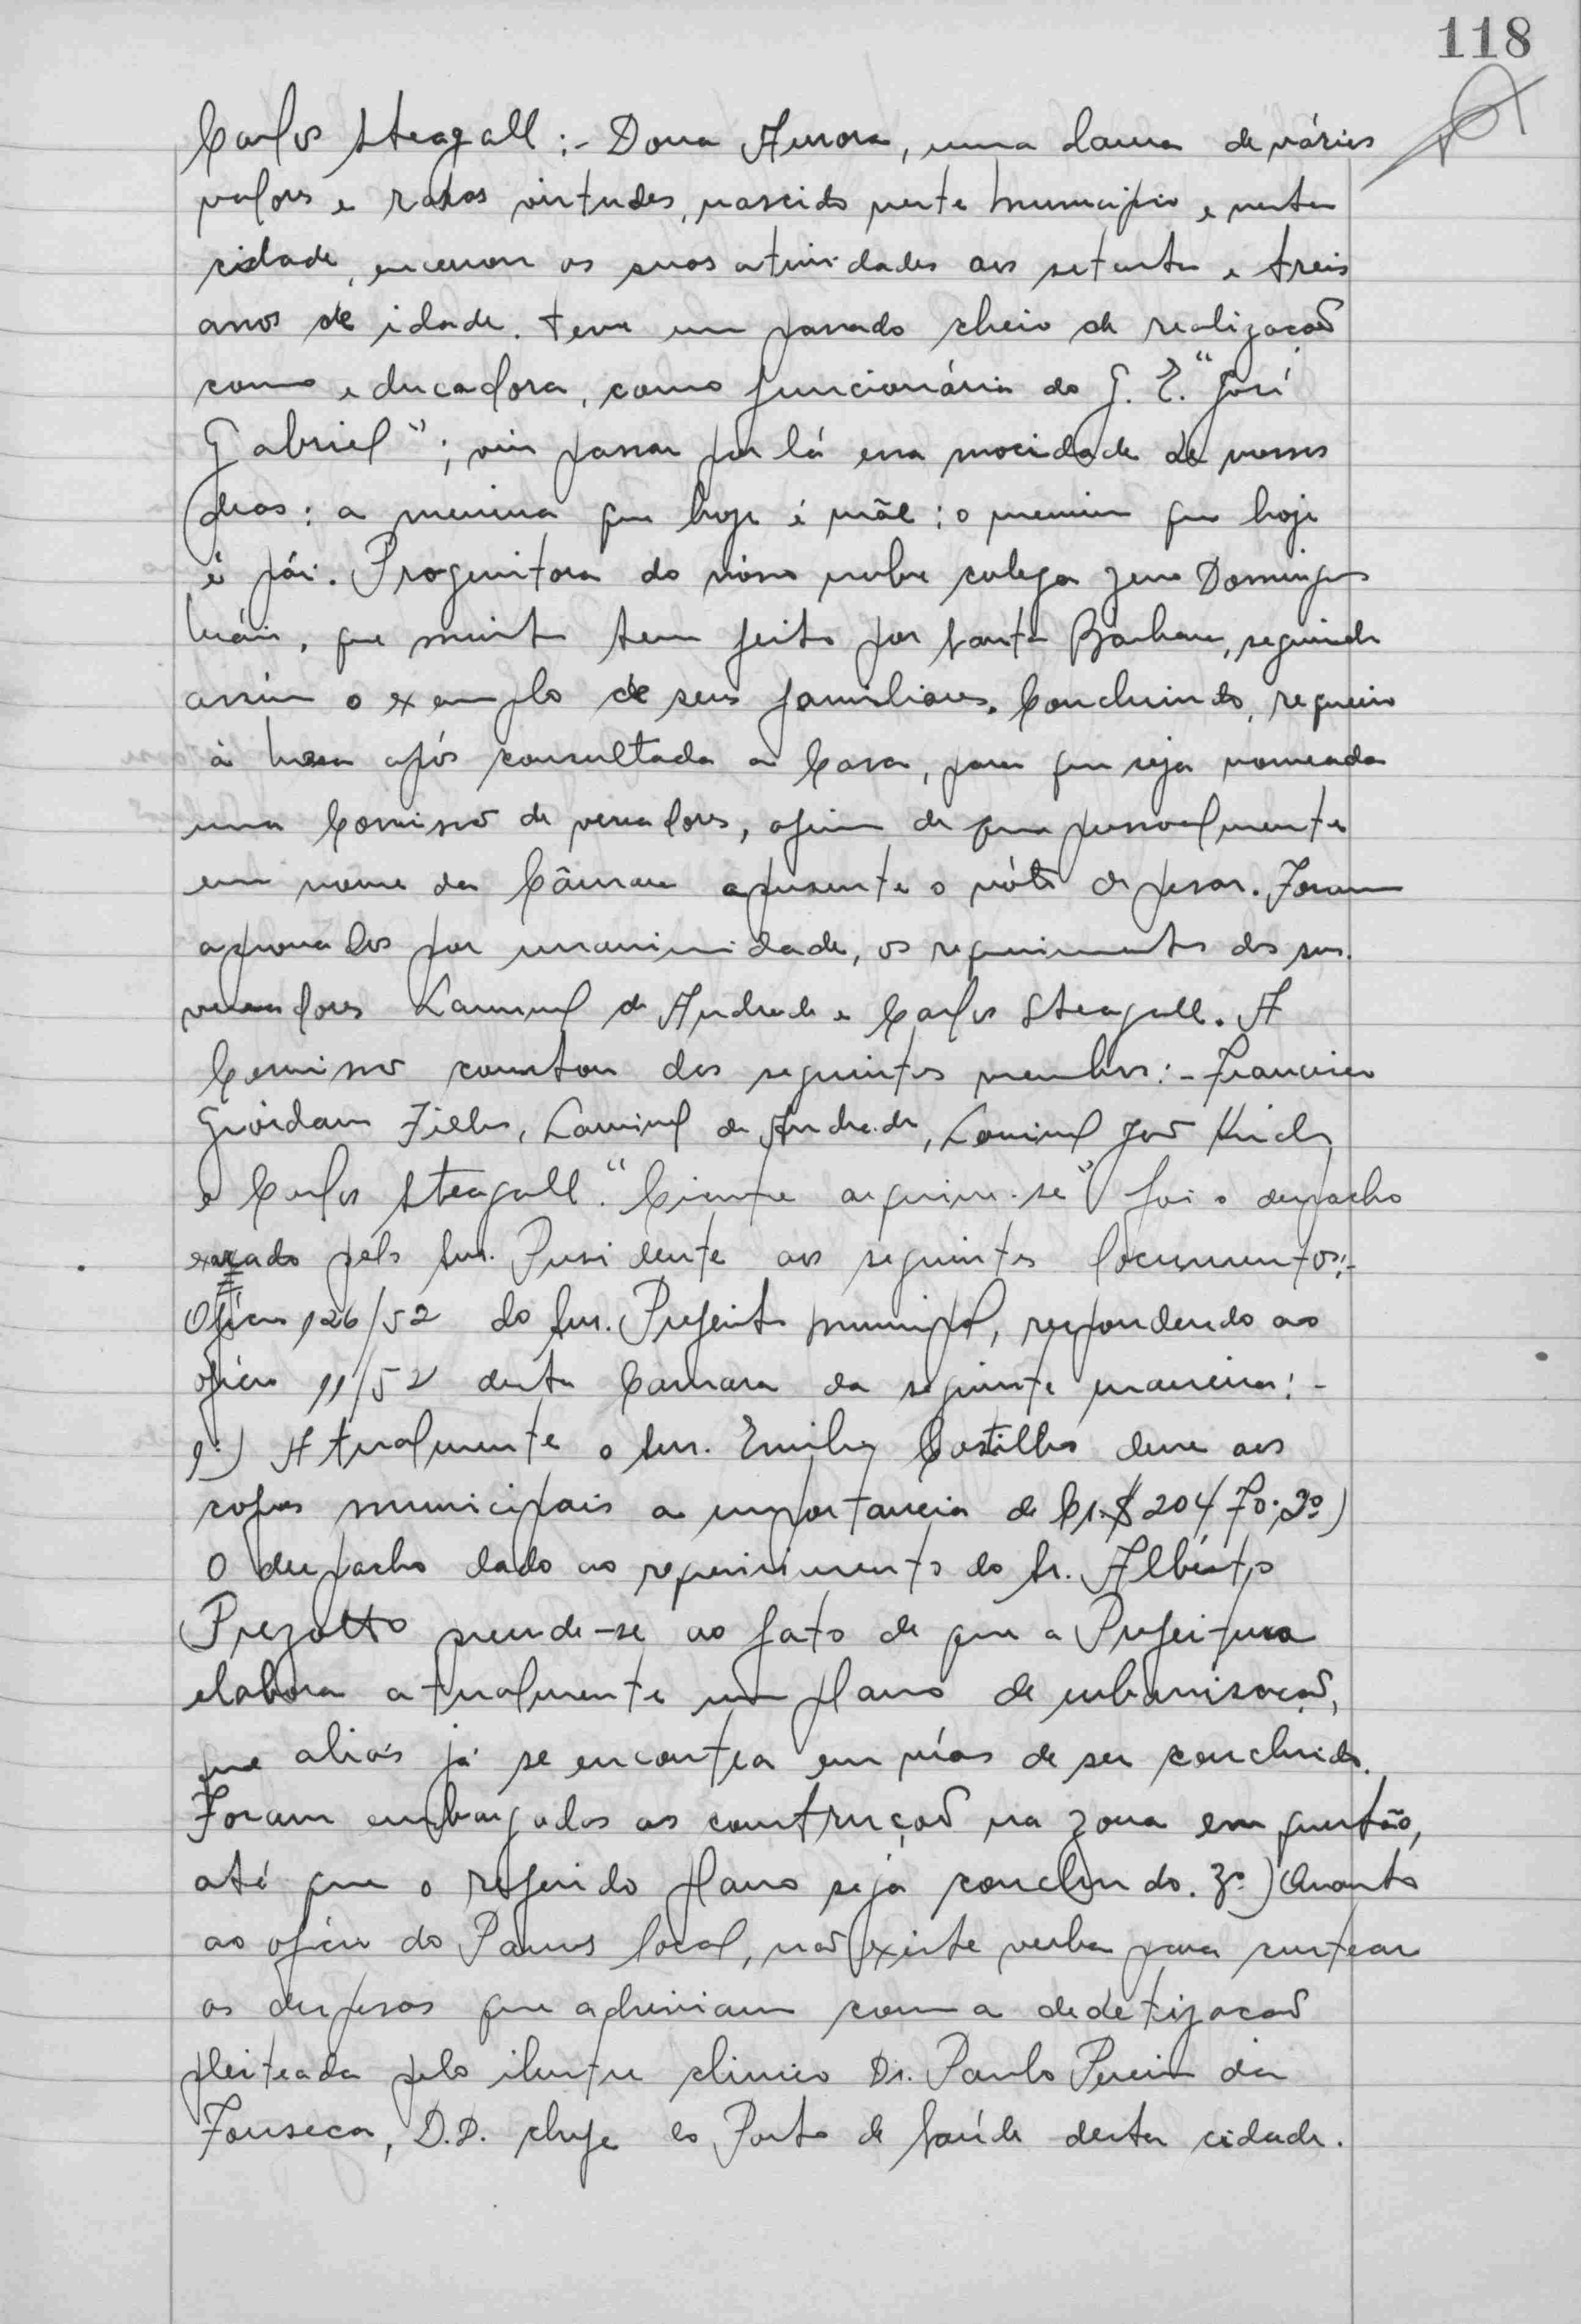 118
Carlos Steagall :- Dona Aurora, uma dama de vários
valores e raras virtudes, nascida neste município e nesta
cidade, encerrou as suas atividades aos setenta e treis
anos de idade. Teve um passado cheio de realização
como educadora, como funcionária do G. E. "José
Gabriel"; viu passar por lá essa mocidade de nossos
dias: a menina que hoje é mãe; o menino que hoje
é pái. Progenitora do nosso nobre colega Domingos
que muito tem feito por Santa Bárbara, seguindo
assim o exemplo de seus familiares. Concluindo, requeiro
à mesa após consultada a Casa, para que seja nomeada
uma Comissão de vereadores, afim de que pessoalmente
em nome da Câmara apresente o vóto de pesar. Foram
aprovados por unanimidade, os requerimentos dos srs.
vereadores de Andrade e Carlos Steagall. A
Comissão constou dos seguintes membros:- Francisco
Giordano Filho, de Andrade, João
e Carlos Steagall. "Ciente arquive-se" foi o despacho
exarado pelo Snr. Presidente aos seguintes documentos:-
Ofício 126/52 do Snr. Prefeito municipal, respondendo ao
ofício 11/52 desta Camara da seguinte maneira:-
1º) Atualmente o Snr. Emilio Castilho deve aos
cofres municipais a importancia de Cr.$ 204,70; 2º)
O despacho dado ao requerimento do Sr. Albérto
Prezotto prende-se ao fato de que a Prefeitura
elabora atualmente um plano de urbanisação,
que aliás já se encontra em vias de ser concluido.
Foram embargadas as construção na zona em questão,
até que o referido plano seja concluido. 3º) Quanto
ao oficio do Pamos local, não existe verba para custear
as despesas que adviriam com a dedetização
pleiteada pelo ilustre clinico Dr. Paulo Pereira da
Fonseca, D.D. chefe do Posto de Saúde desta cidade.